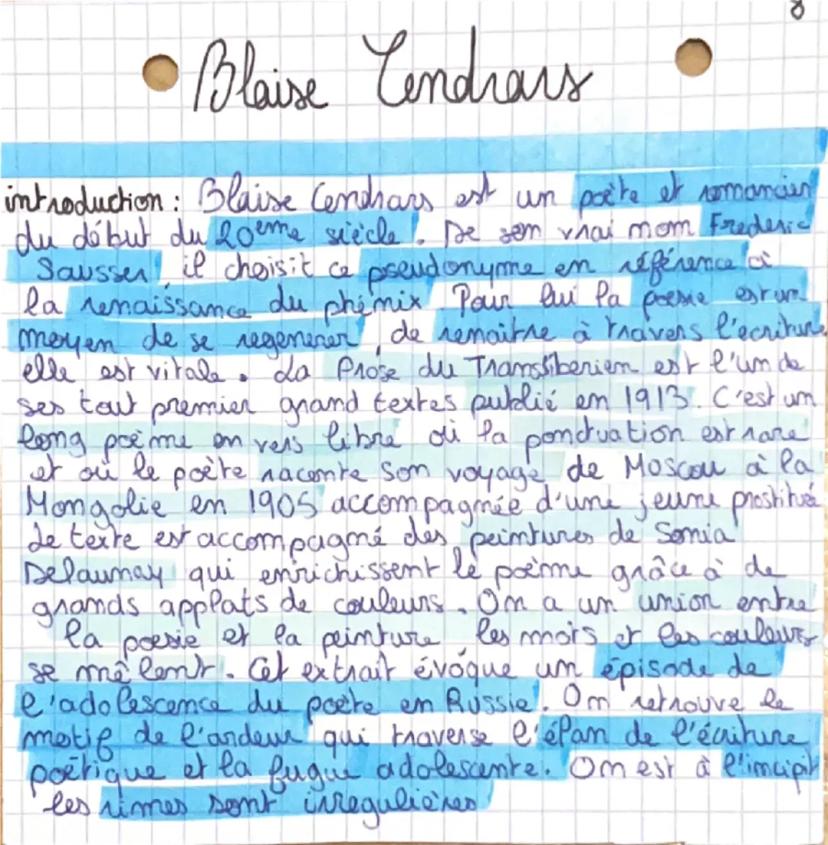 Blaise Cendrars
introduction : Blaise Cendrars est un poète et romancier
du début du 20eme siècle. De son vrai nom Frederic
Sausser il choisit ce pseudonyme en référence à
la renaissance du phénix Pour lui la poesie est un
moyen de se regenerer, de renaitre à travers l'ecriture
elle est vitale. La Prose du Transsiberien est l'un de
ses tout premier grand textes publié en 1913. C'est un
long poème en vers libre où la ponctuation est rare
et où le poète raconte son voyage de Moscou à la
Mongolie en 1905 accompagnée d'une jeune prostituée
Le texte est accompagné des peintures de Sonia
Delaunay qui enrichissent le poème grâce à de
grands applats de couleurs. On a un union entre
la poesie et la peinture les mots et les couleurs
se mêlent. Cet extrait évoque un épisode de
l'adolescence du poète en Russie. On retrouve le
motif de l'ardeur qui traverse l'élan de l'écriture
poëtique et la fugue adolescente. On est à l'incipit
les rimes sont irregulières